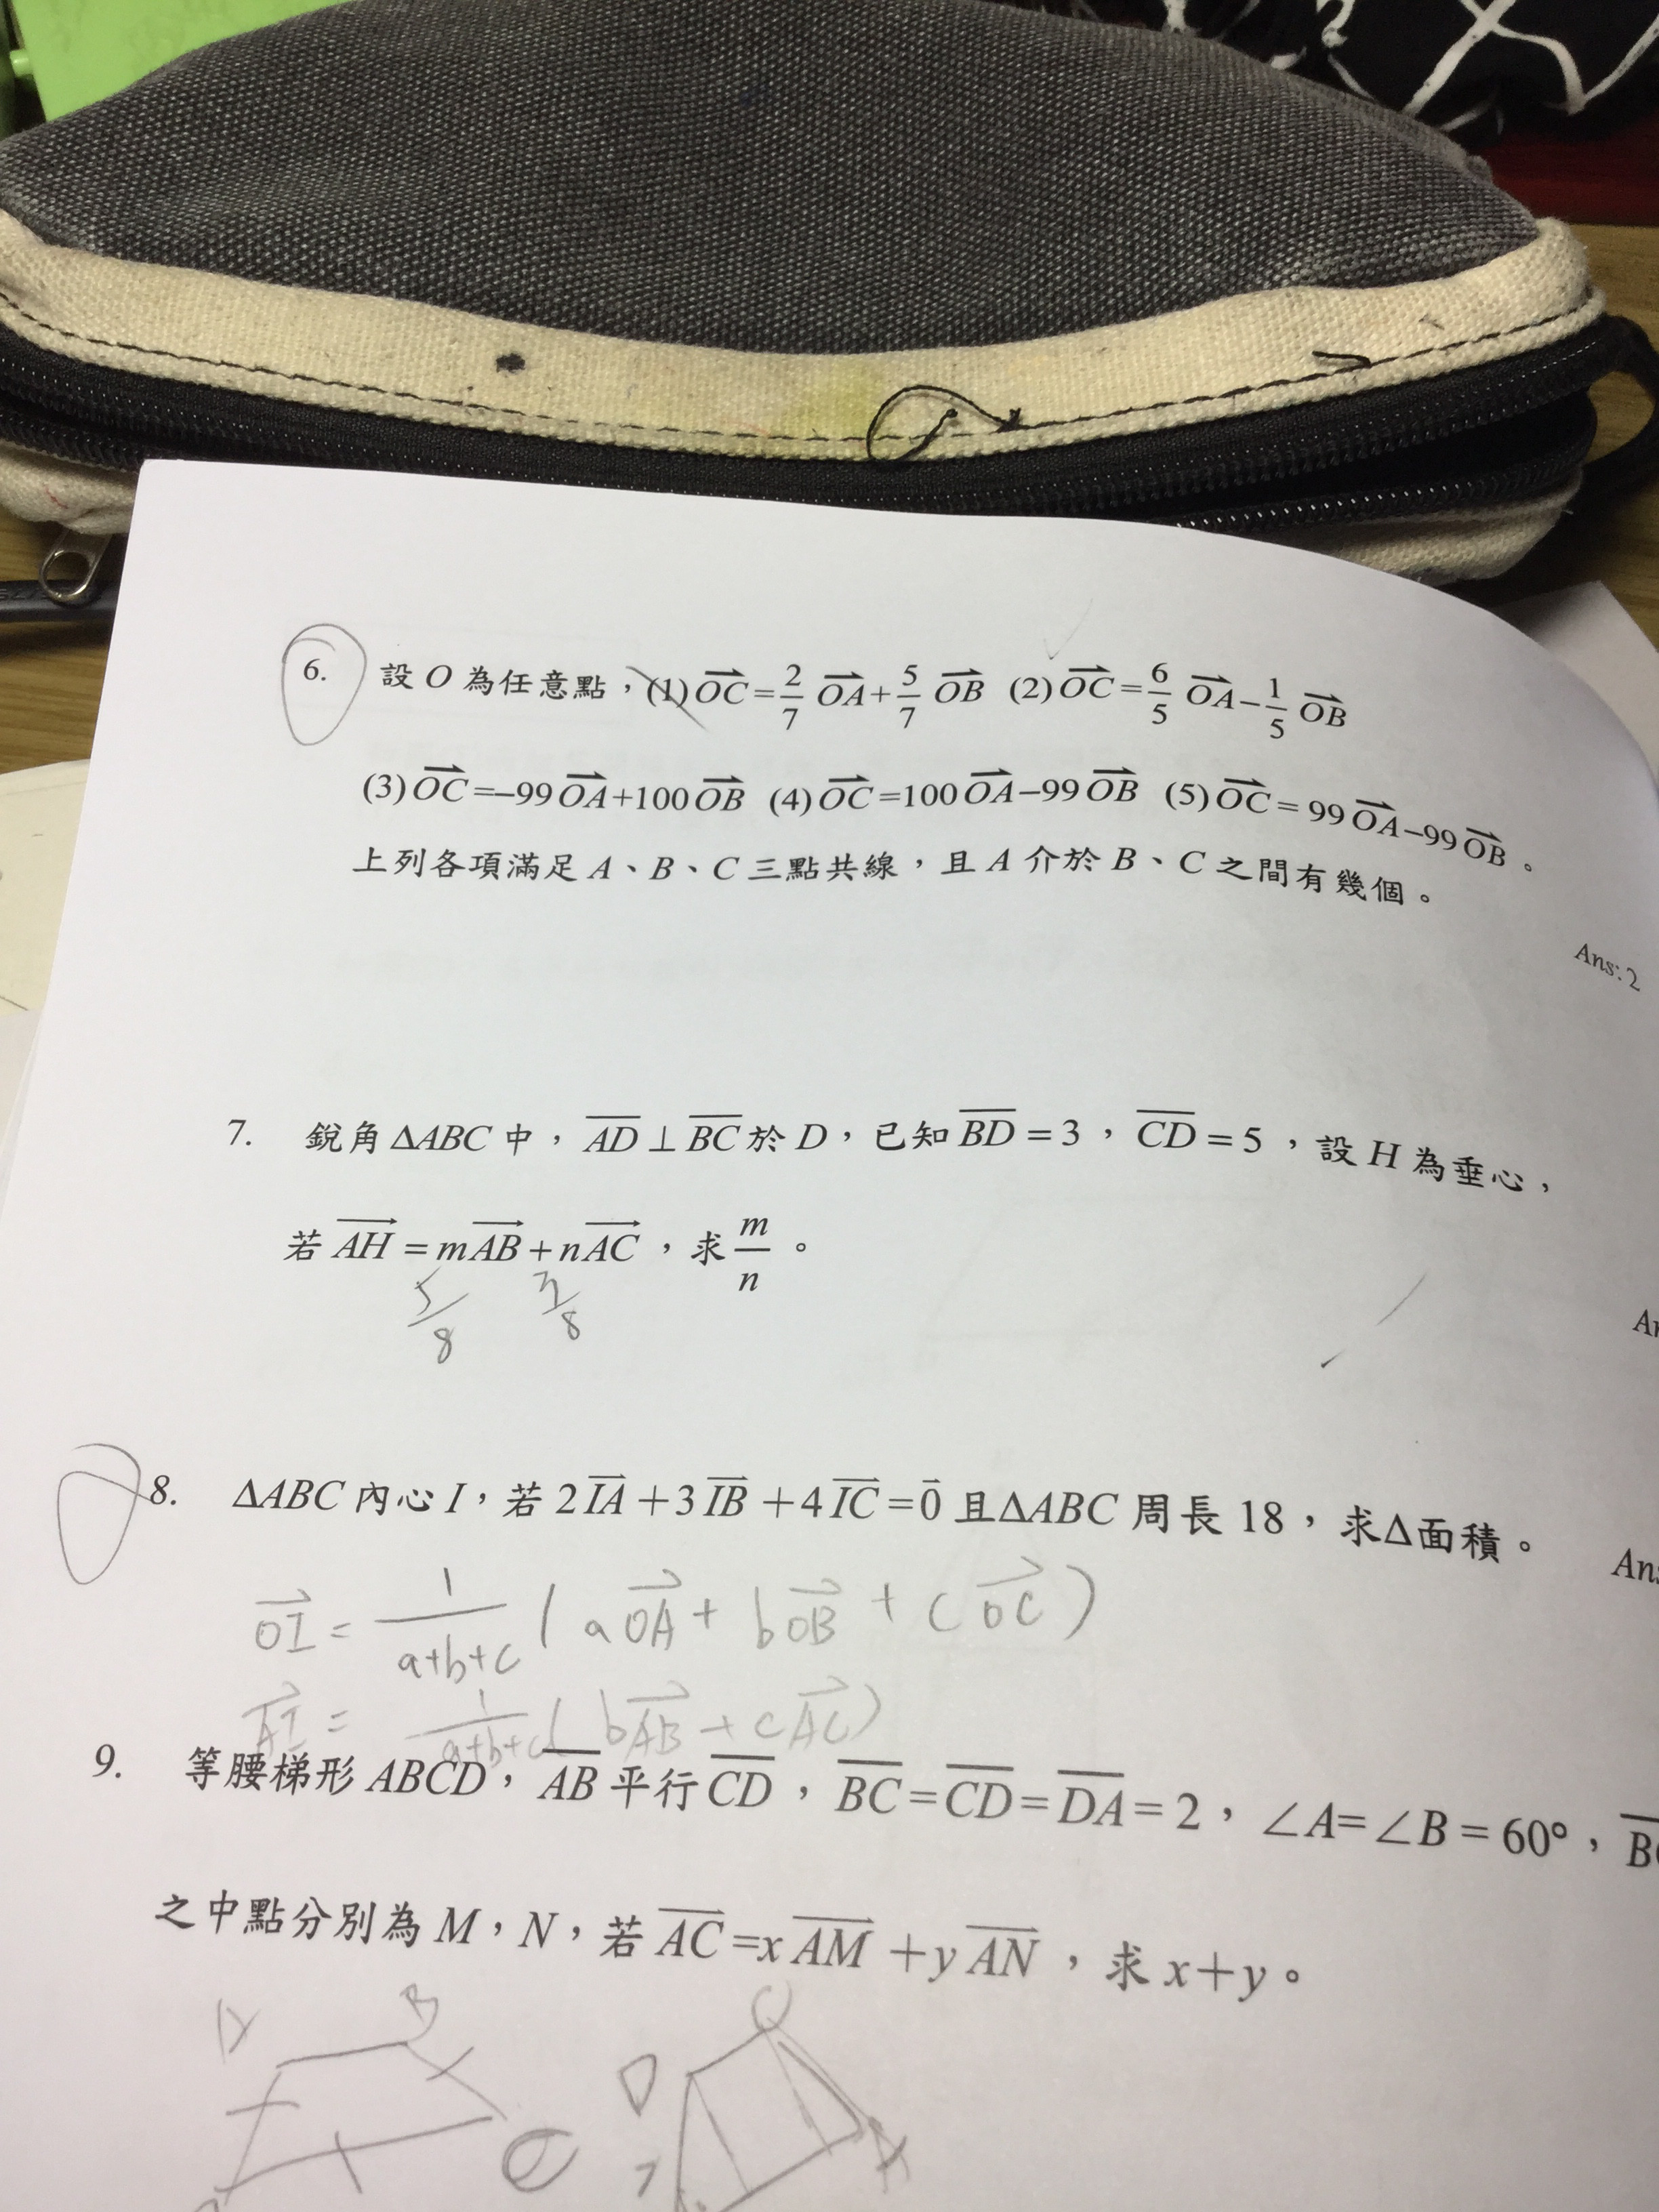 6. 設 O 為任意點，(1) $\overrightarrow{OC}=\frac{2}{7}\overrightarrow{OA}+\frac{5}{7}\overrightarrow{OB}$ (2) $\overrightarrow{OC}=\frac{6}{5}\overrightarrow{OA}-\frac{1}{5}\overrightarrow{OB}$
(3) $\overrightarrow{OC}=-99\overrightarrow{OA}+100\overrightarrow{OB}$ (4) $\overrightarrow{OC}=100\overrightarrow{OA}-99\overrightarrow{OB}$ (5) $\overrightarrow{OC}=99\overrightarrow{OA}-99\overrightarrow{OB}$。
上列各項滿足 A、B、C 三點共線，且 A 介於 B、C 之間有幾個。
Ans: 2
7. 銳角 ΔABC 中，$\overline{AD}\perp\overline{BC}$ 於 D，已知 $\overline{BD}=3$，$\overline{CD}=5$，設 H 為垂心，
若 $\overrightarrow{AH}=m\overrightarrow{AB}+n\overrightarrow{AC}$，求 $\frac{m}{n}$。
8. ΔABC 內心 I，若 $2\overrightarrow{IA}+3\overrightarrow{IB}+4\overrightarrow{IC}=\vec{0}$ 且 ΔABC 周長 18，求 Δ 面積。
Ans
$\overrightarrow{OI}=\frac{1}{a+b+c}(a\overrightarrow{OA}+b\overrightarrow{OB}+c\overrightarrow{OC})$
$\overrightarrow{AI}=\frac{1}{a+b+c}(b\overrightarrow{AB}+c\overrightarrow{AC})$
9. 等腰梯形 ABCD，$\overline{AB}$ 平行 $\overline{CD}$，$\overline{BC}=\overline{CD}=\overline{DA}=2$，∠A=∠B=60°，
之中點分別為 M，N，若 $\overrightarrow{AC}=x\overrightarrow{AM}+y\overrightarrow{AN}$，求 x+y。
B
C
D